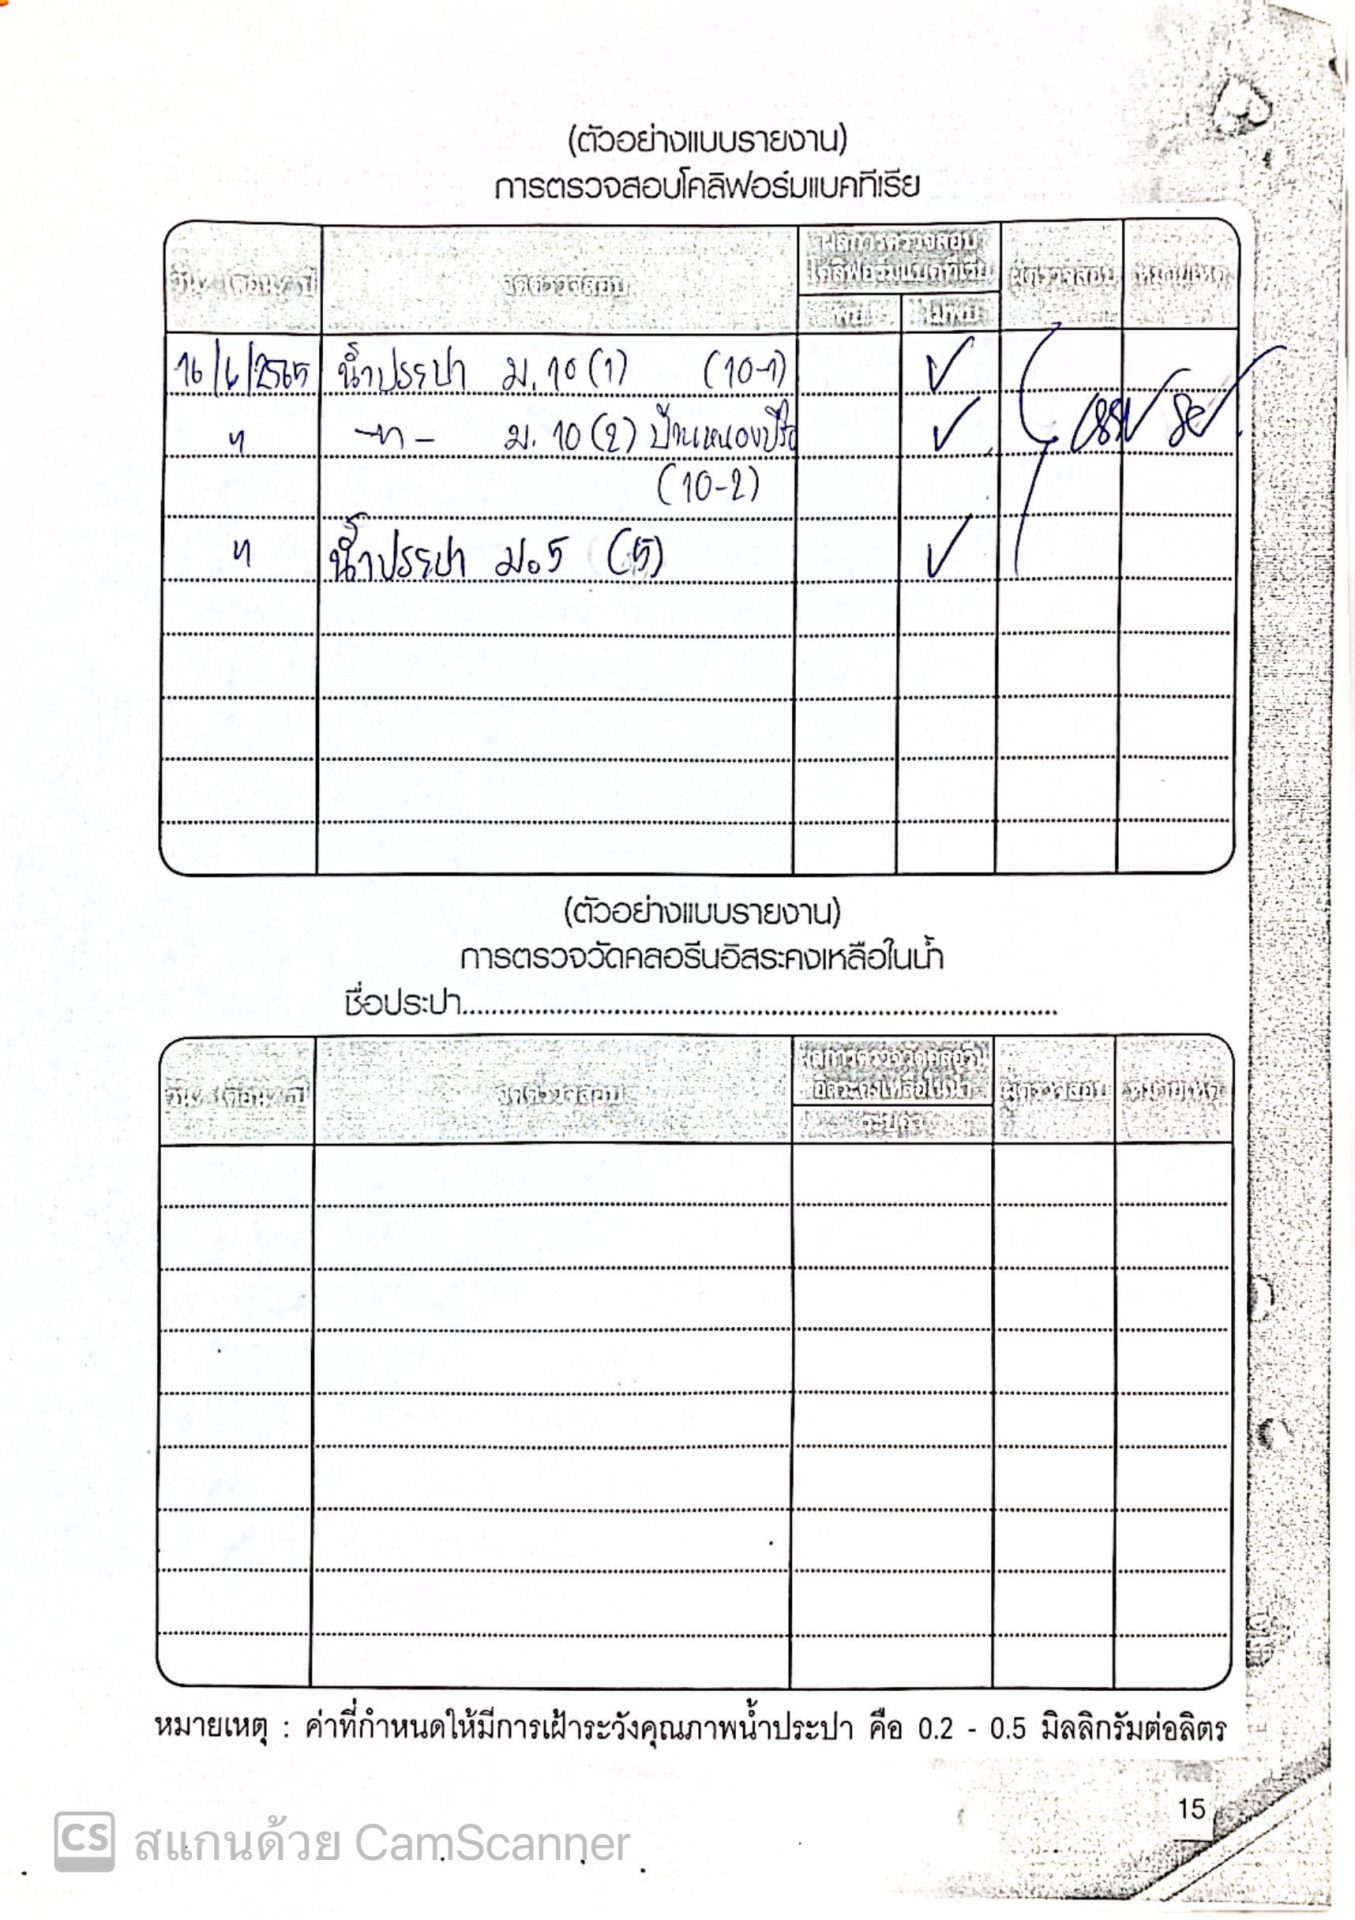 (ตัวอย่างแบบรายงาน)
การตรวจสอบโคลิฟอร์มแบคทีเรีย
วัน/เดือน/ปี จุดตรวจสอบ ผลการตรวจสอบ โคลิฟอร์มแบคทีเรีย ผู้ตรวจสอบ หมายเหตุ
พบ ไม่พบ
16/6/2565 น้ำประปา ม.10 (1) (10-1) ✓
ท -ท- ม. 10 (2) บ้านหนองปรือ ✓
(10-2)
ท น้ำประปา ม.5 (5) ✓
(ตัวอย่างแบบรายงาน)
การตรวจวัดคลอรีนอิสระคงเหลือในน้ำ
ชื่อประปา
วัน/เดือน/ปี จุดตรวจสอบ ผลการตรวจวัดคลอรีน อิสระคงเหลือในน้ำ ผู้ตรวจสอบ หมายเหตุ
หมายเหตุ : ค่าที่กำหนดให้มีการเฝ้าระวังคุณภาพน้ำประปา คือ 0.2 - 0.5 มิลลิกรัมต่อลิตร
15
CS สแกนด้วย CamScanner